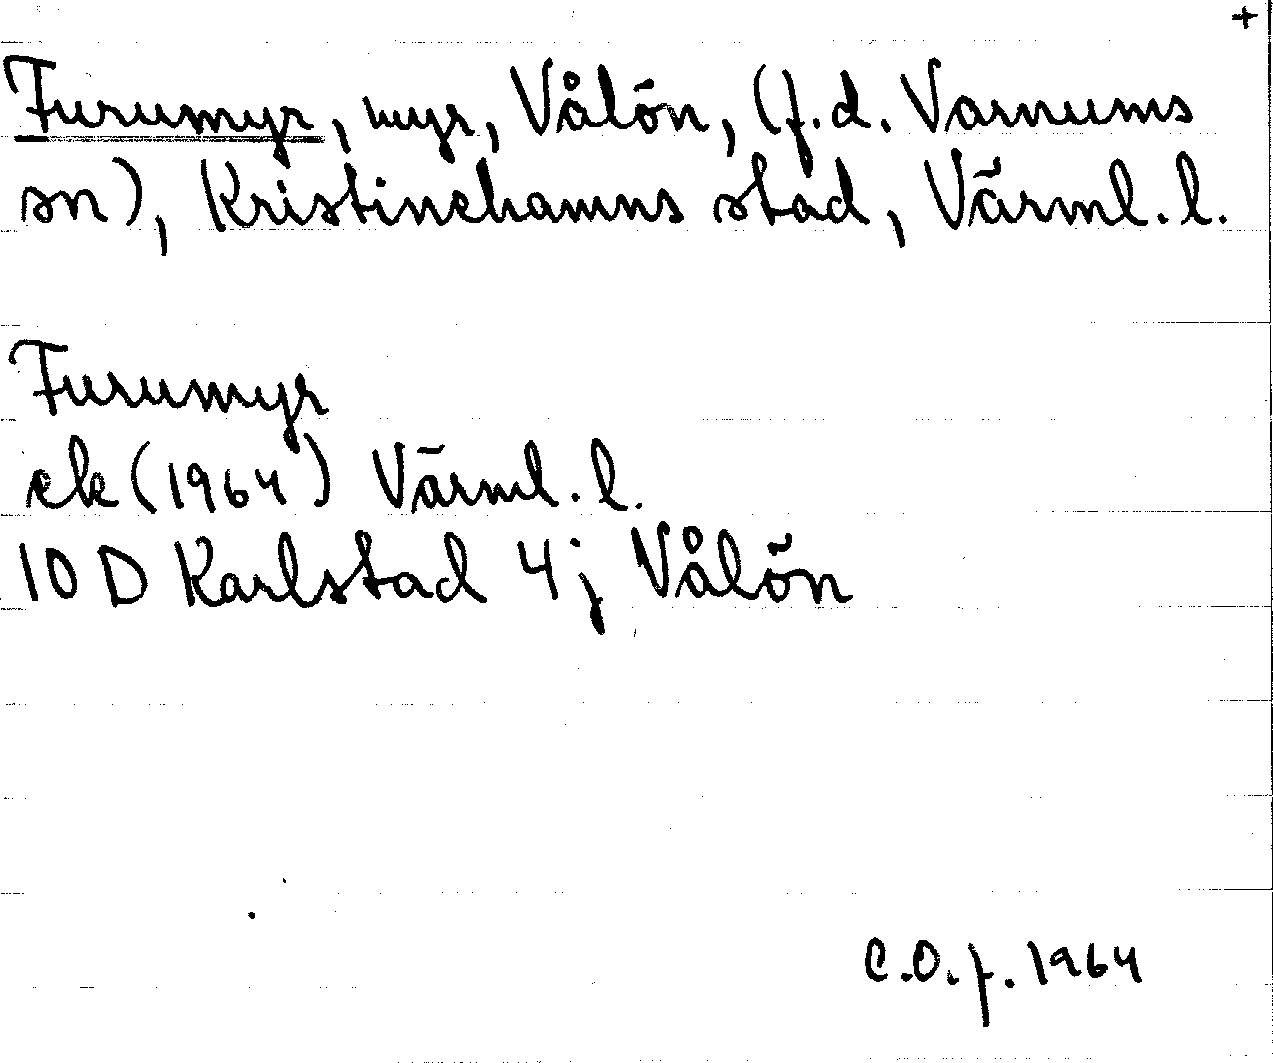 +
Furumyr, myr, Vålön, (f.d. Varnums
sn), Kristinehamns stad, Värml. l.
Furumyr
ek (1964) Värml. l.
10 D Karlstad 4j Vålön
C.O.f. 1964